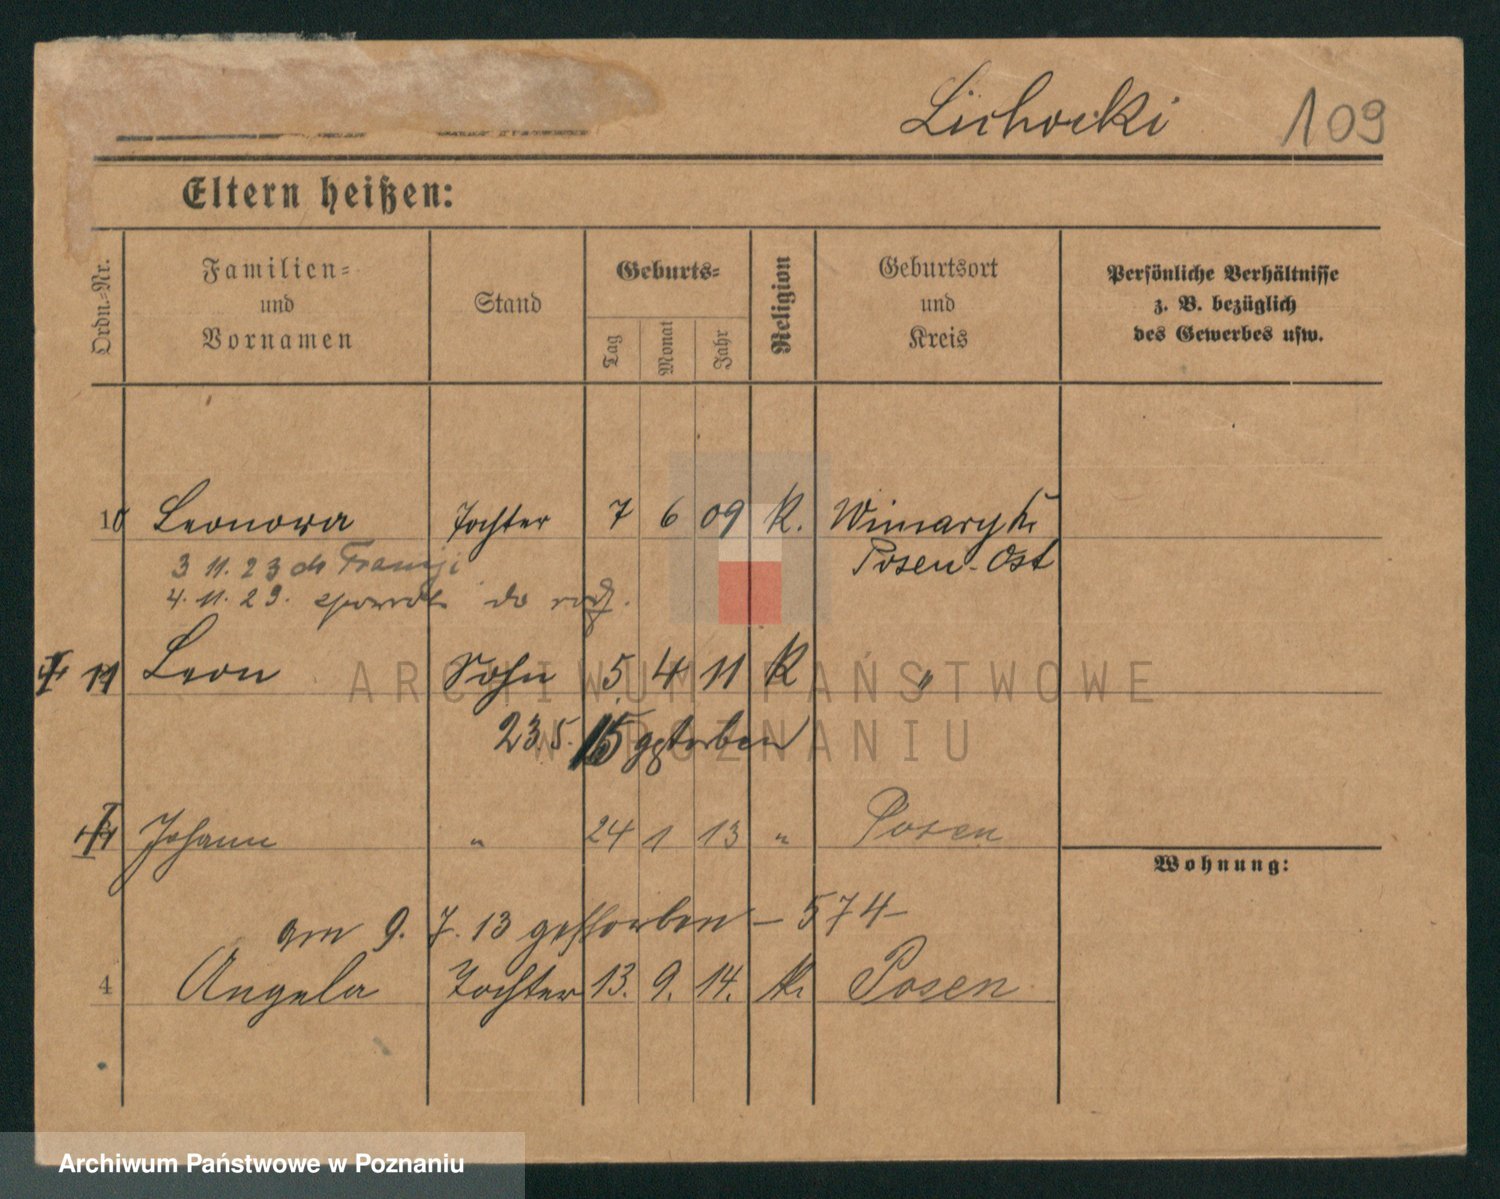 Lichocki 109
Eltern heißen:
Ordn.=Nr.
Familien=
und
Vornamen
Stand
Geburts=
Tag
Monat
Jahr
Religion
Geburtsort
und
Kreis
Persönliche Verhältnisse
z. B. bezüglich
des Gewerbes usw.
10 Leonowa Tochter 7 6 09 K. Winiary Kr
Posen-Ost
3 11. 23 do Francji
4. 11. 29. do
11 Leon Sohn 5 4 11 K "
23.5. 15 gestorben
Johann " 24 1 13 " Posen
am 9. 7. 13 gestorben – 574 –
4 Angela Tochter 13. 9. 14. k. Posen
Wohnung:
ARCHIWUM PAŃSTWOWE
W POZNANIU
Archiwum Państwowe w Poznaniu